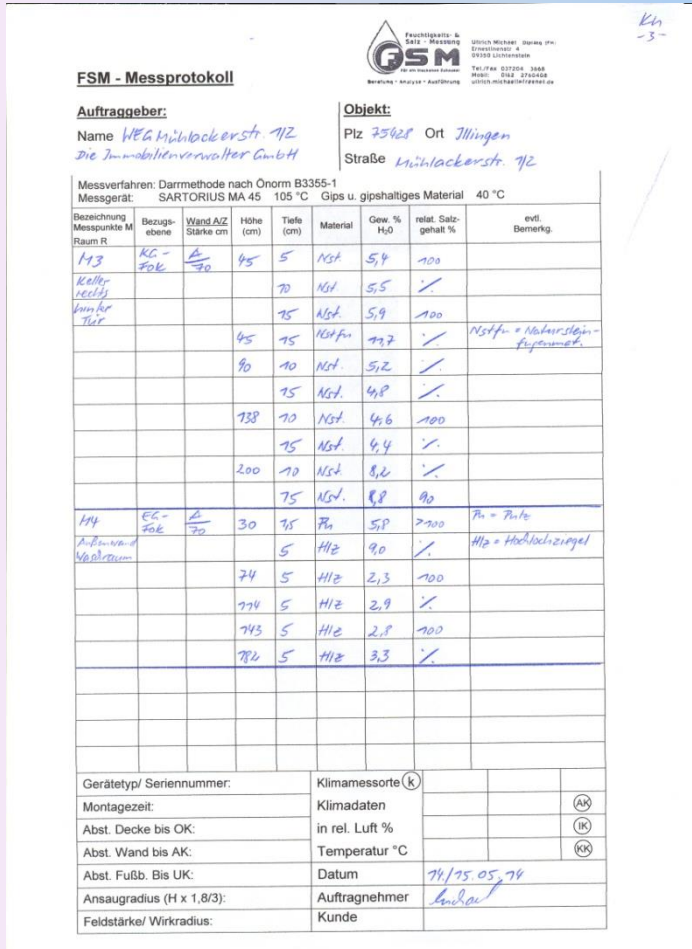 Kh
-3-
Feuchtigkeits- &
Salz - Messung
FSM
Beratung - Analyse - Ausführung
Ullrich Michael
Ernestinenstr. 4
09350 Lichtenstein
Tel./Fax 037204 3668
FSM - Messprotokoll
Auftraggeber:
Name WEG Mühlackerstr. 1/2
Die Immobilienverwalter GmbH
Objekt:
Plz 75428 Ort Illingen
Straße Mühlackerstr. 1/2
Messverfahren: Darrmethode nach Önorm B3355-1
Messgerät: SARTORIUS MA 45 105 °C Gips u. gipshaltiges Material 40 °C
Bezeichnung Messpunkte M Raum R Bezugs-ebene Wand A/Z Stärke cm Höhe (cm) Tiefe (cm) Material Gew. % H₂0 relat. Salz-gehalt % evtl. Bemerkg.
M3 KG-Fok A/70 45 5 Nst. 5,4 100
Keller rechts 10 Nst. 5,5 ·/.
hinter Tür 15 Nst. 5,9 100
45 15 Nstfu 11,7 ·/. Nstfu = Naturstein-fugenmat.
90 10 Nst. 5,2 ·/.
15 Nst. 4,8 ·/.
138 10 Nst. 4,6 100
15 Nst. 4,4 ·/.
200 10 Nst. 8,2 ·/.
15 Nst. 8,8 90
M4 EG-Fok A/70 30 1,5 Pu 5,8 >100 Pu = Putz
Außenwand Waschraum 5 Hlz 9,0 ·/. Hlz = Hochlochziegel
74 5 Hlz 2,3 100
114 5 Hlz 2,9 ·/.
143 5 Hlz 2,8 100
182 5 Hlz 3,3 ·/.
Gerätetyp/ Seriennummer: Klimamessorte k
Montagezeit: Klimadaten AK
Abst. Decke bis OK: in rel. Luft % IK
Abst. Wand bis AK: Temperatur °C KK
Abst. Fußb. Bis UK: Datum 14/15.05.14
Ansaugradius (H x 1,8/3): Auftragnehmer
Feldstärke/ Wirkradius: Kunde